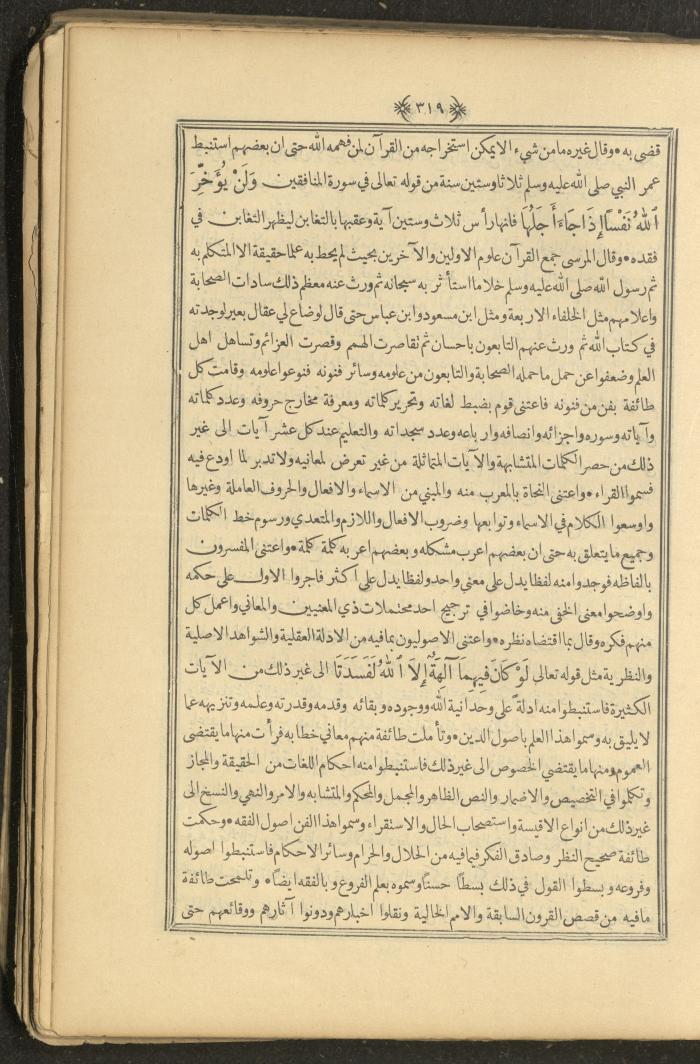 ٣١٩
قضى به • وقال غيره ما من شيء الا يمكن استخراجه من القرآن لمن فهمه الله حتى ان بعضهم استنبط
عمر النبي صلى الله عليه وسلم ثلاثا وستين سنة من قوله تعالى في سورة المنافقين وَلَنْ يُؤَخِّرَ
ٱللهُ نَفْسًا إِذَا جَاءَ أَجَلُهَا فانها رأس ثلاث وستين آية وعقبها بالتغابن ليظهر التغابن في
فقده • وقال المرسي جمع القرآن علوم الاولين والآخرين بحيث لم يحط به علما حقيقة الا المتكلم به
ثم رسول الله صلى الله عليه وسلم خلا ما استأثر به سبحانه ثم ورث عنه معظم ذلك سادات الصحابة
واعلامهم مثل الخلفاء الاربعة ومثل ابن مسعود وابن عباس حتى قال لو ضاع لي عقال بعير لوجدته
في كتاب الله ثم ورث عنهم التابعون باحسان ثم تقاصرت الهمم وقصرت العزائم وتساهل اهل
العلم وضعفوا عن حمل ما حمله الصحابة والتابعون من علومه وسائر فنونه فنوعوا علومه وقامت كل
طائفة بفن من فنونه فاعتنى قوم بضبط لغاته وتحرير كلماته ومعرفة مخارج حروفه وعدد كلماته
وآياته وسوره واجزائه وانصافه وارباعه وعدد سجداته والتعليم عند كل عشر آيات الى غير
ذلك من حصر الكلمات المتشابهة والآيات المتماثلة من غير تعرض لمعانيه ولا تدبر لما اودع فيه
فسموا القراء • واعتنى النحاة بالمعرب منه والمبني من الاسماء والافعال والحروف العاملة وغيرها
واوسعوا الكلام في الاسماء وتوابعها وضروب الافعال واللازم والمتعدي ورسوم خط الكلمات
وجميع ما يتعلق به حتى ان بعضهم اعرب مشكله وبعضهم اعربه كلمة كلمة • واعتنى المفسرون
بالفاظه فوجدوا منه لفظا يدل على معنى واحد ولفظا يدل على اكثر فاجروا الاول على حكمه
واوضحوا معنى الخفي منه وخاضوا في ترجيح احد محتملات ذي المعنيين والمعاني واعمل كل
منهم فكره وقال بما اقتضاه نظره • واعتنى الاصوليون بما فيه من الادلة العقلية والشواهد الاصلية
والنظرية مثل قوله تعالى لَوْ كَانَ فِيهِمَا آلِهَةٌ إِلاَّ ٱللهُ لَفَسَدَتَا الى غير ذلك من الآيات
الكثيرة فاستنبطوا منه ادلةً على وحدانية الله ووجوده وبقائه وقدمه وقدرته وعلمه وتنزيهه عما
لا يليق به وسموا هذا العلم باصول الدين • وتأملت طائفة منهم معاني خطابه فرأت منها ما يقتضى
العموم ومنها ما يقتضي الخصوص الى غير ذلك فاستنبطوا منه احكام اللغات من الحقيقة والمجاز
وتكلموا في التخصيص والاضمار والنص الظاهر والمجمل والمحكم والمتشابه والامر والنهي والنسخ الى
غير ذلك من انواع الاقيسة واستصحاب الحال والاستقراء وسموا هذا الفن اصول الفقه • وحكمت
طائفة صحيح النظر وصادق الفكر فيما فيه من الحلال والحرام وسائر الاحكام فاستنبطوا اصوله
وفروعه وبسطوا القول في ذلك بسطًا حسنًا وسموه بعلم الفروع وبالفقه ايضًا • وتلمحت طائفة
ما فيه من قصص القرون السابقة والامم الخالية ونقلوا اخبارهم ودونوا آثارهم ووقائعهم حتى